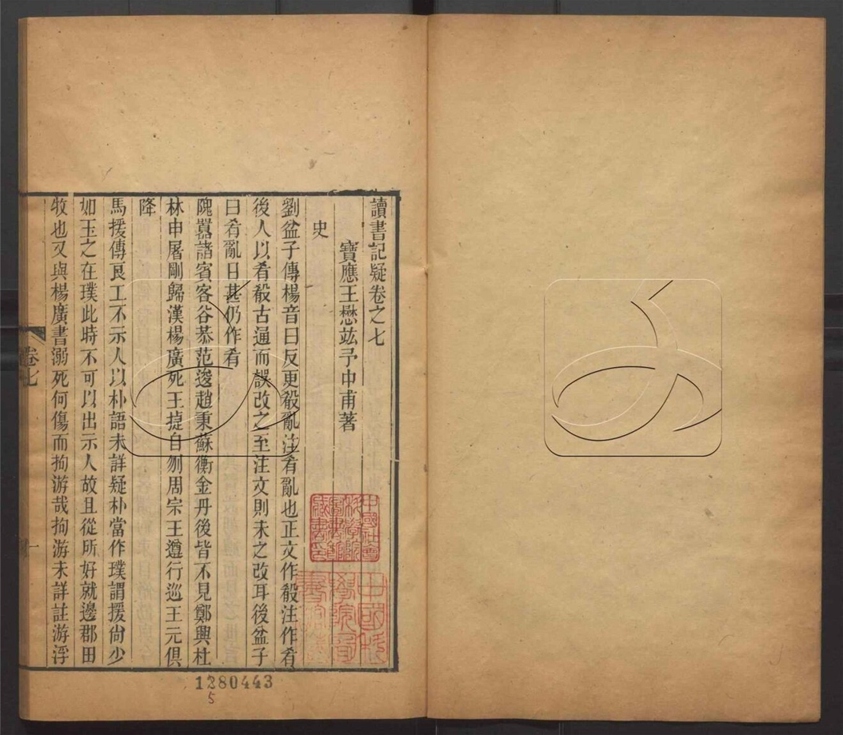 讀書記疑卷之七
寶應王懋竑予中甫著
史
劉盆子傳楊音曰反更殽亂注肴亂也正文作殽注作肴
後人以肴殽古通而誤改之至注文則未之改耳後盆子
曰肴亂日甚仍作肴
隗囂諸賓客谷恭范逡趙秉蘇衡金丹後皆不見鄭興杜
林申屠剛歸漢楊廣死王捷自刎周宗王遵行巡王元俱
降
馬援傳良工不示人以朴語未詳疑朴當作璞謂援尙少
如玉之在璞此時不可以出示人故且從所好就邊郡田
牧也又與楊廣書溺死何傷而拘游哉拘游未詳註游浮
卷七
一
1280443
5